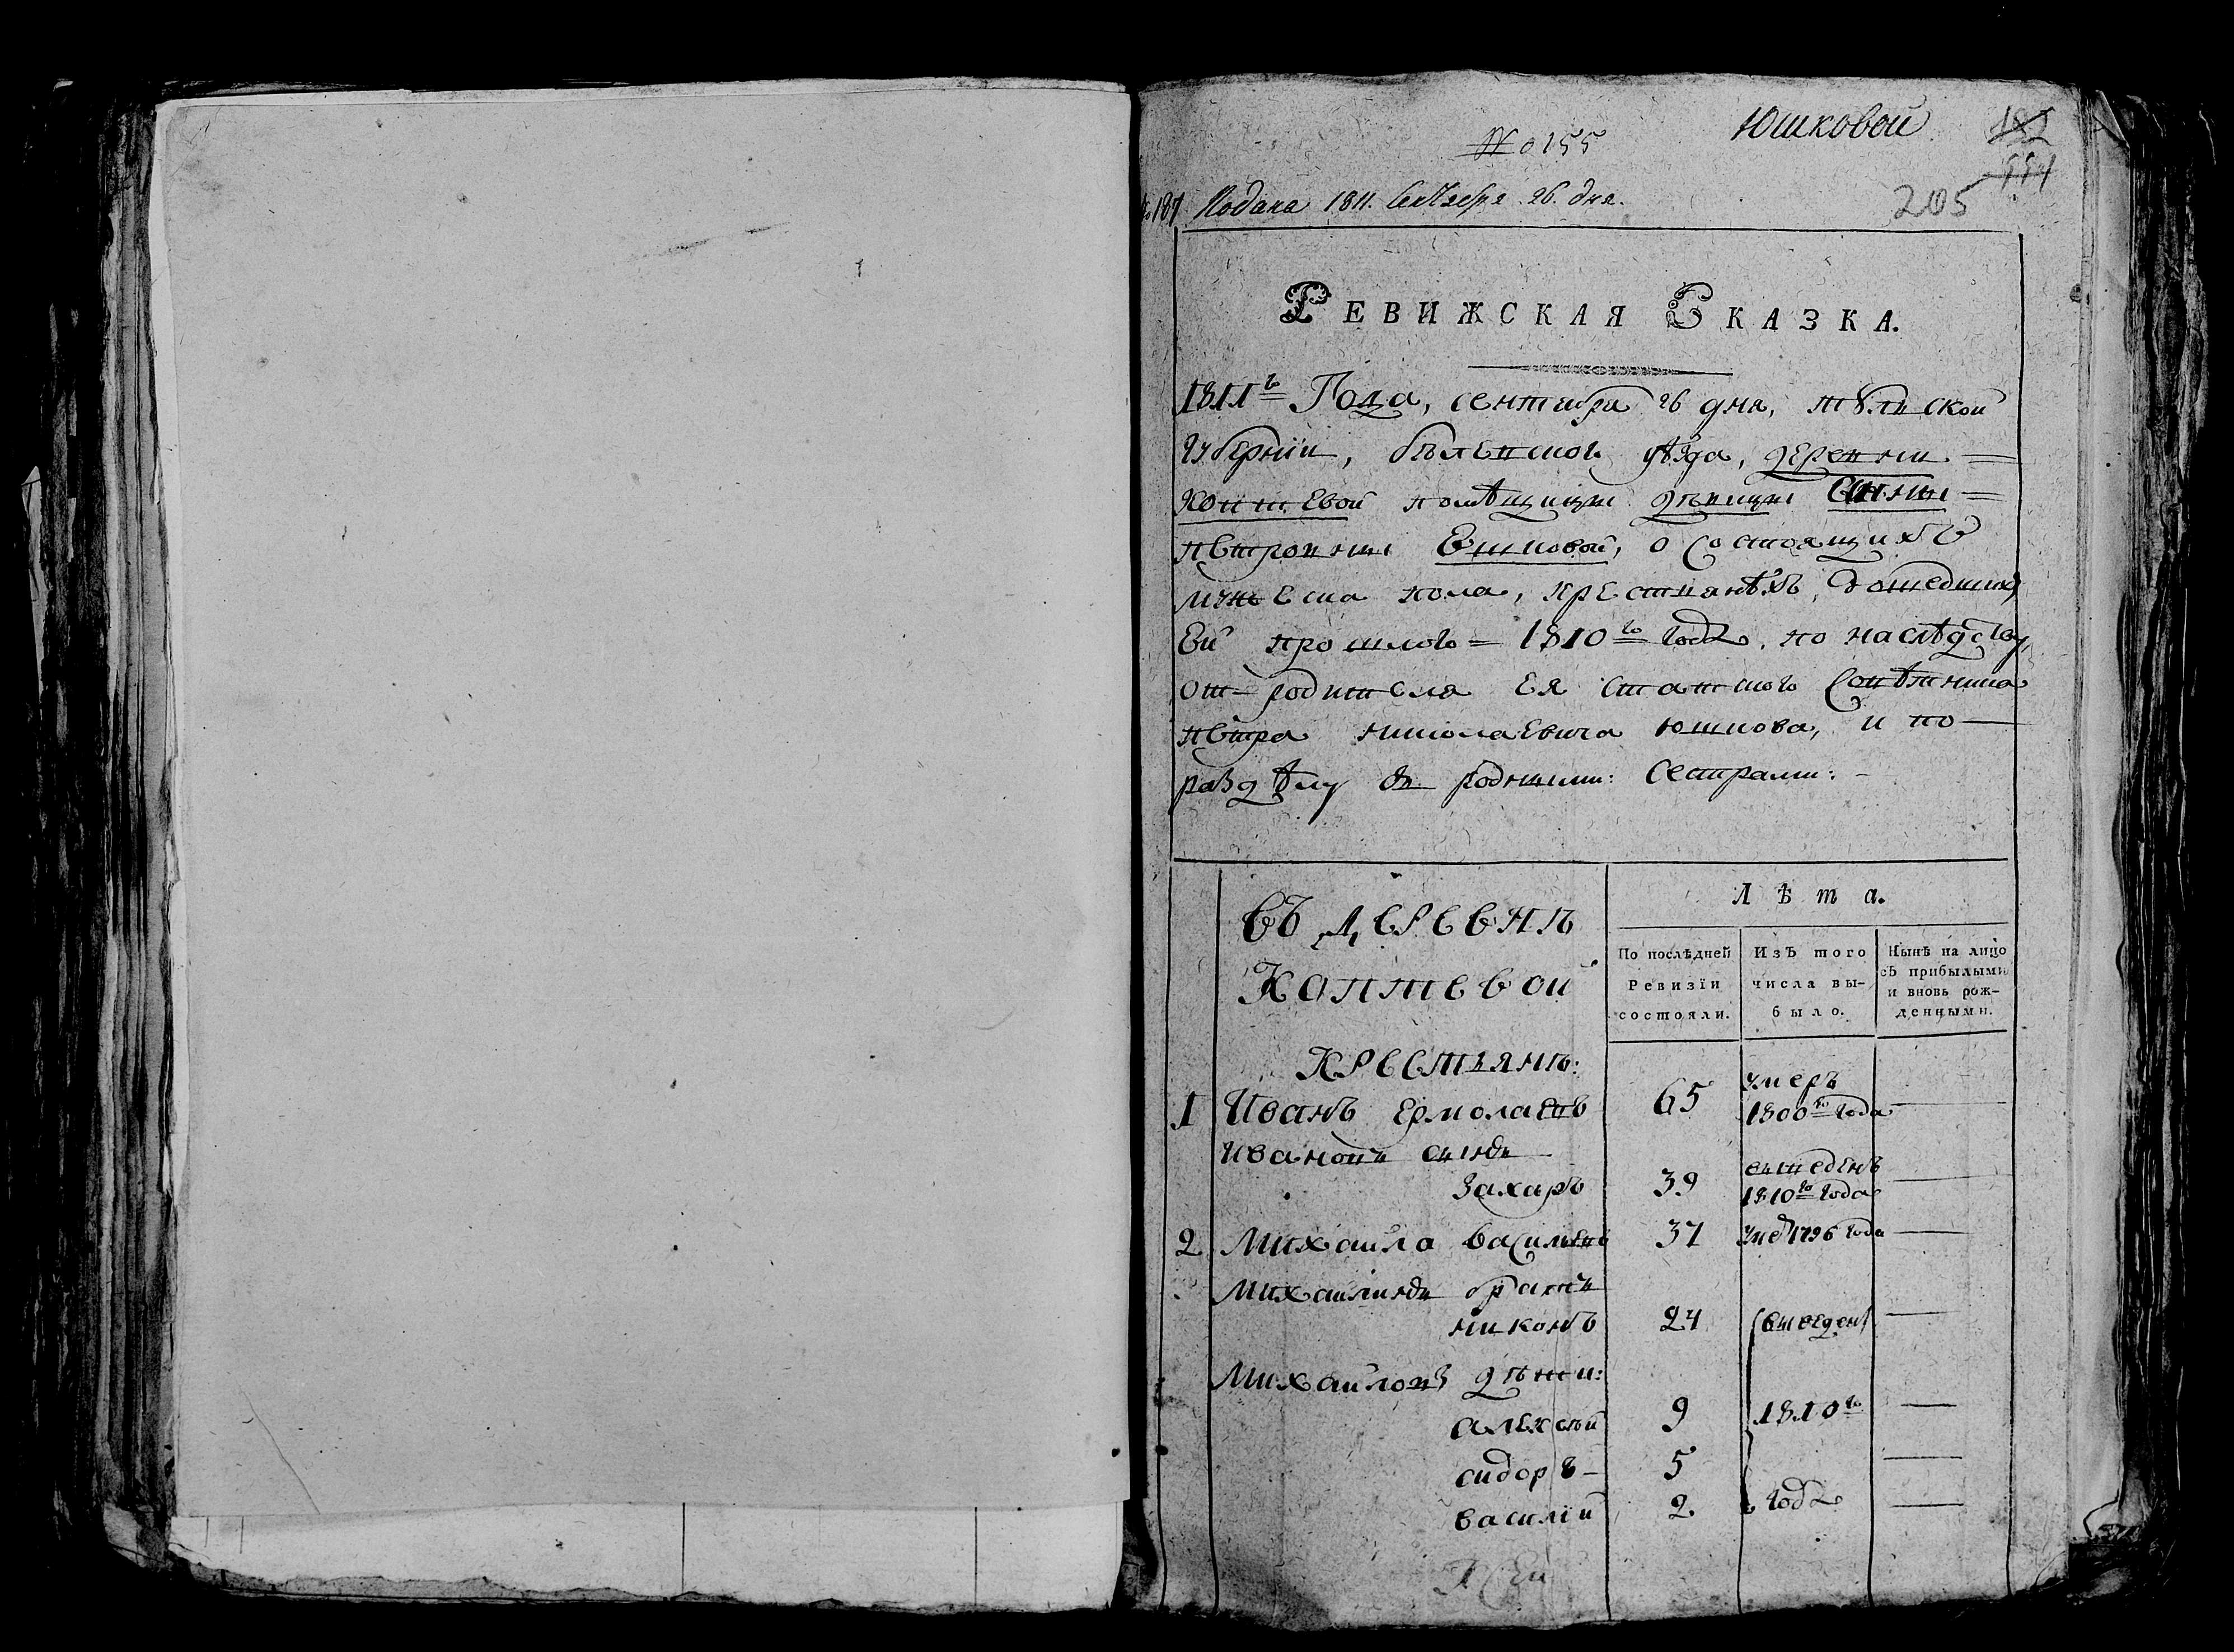 Юшковой
№ 0155
185
554
205
№ 187 Подана 1811. Сентября. 26. дня.
РЕВИЖСКАЯ СКАЗКА.
1811го Года, сентября 26 дня, тꙋлской
губернїи, бѣлевскова уѣзда, деревни
коптевой помѣщицы девицы Анны
петровны Юшковой, о состоящихъ
мужеска пола, крестьянѣхъ, дошедших
ей прошлого 1810го года, по наслѣдству,
от родителя ея статского советника
петра николаевича юшкова, и по
разделу съ родными: сестрами:
Въ деревнѣ
Коптевой
Крестьянъ:
Лѣта.
По послѣдней Ревизїи состояли.
Изъ того числа выбыло.
Нынѣ на лицо съ прибылыми и вновь рожденными.
1 Иванъ Ермолаевъ 65 умеръ 1800го года —
Ивановъ сынъ
Захаръ 39 выведенъ 1810го года —
2 Михаила васильевъ 37 умеръ 1796 года —
Михаилинъ братъ
никонъ 24 выведены —
Михаиловы дѣти:
алексѣй 9 1810го —
сидоръ 5 —
василїй 2. года —